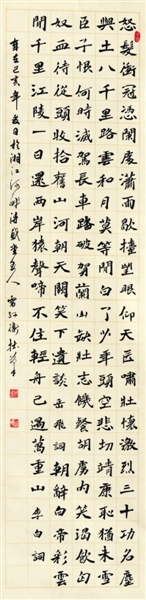 怒髮衝冠憑闌處瀟雨歇擡望眼仰天長嘯壯懷激烈三十功名塵
與土八千里路雲和月莫等閒白了少年頭空悲切靖康恥猶未雪
臣子恨何時滅駕長車踏破賀蘭山缺壯志饑餐胡虜肉笑渴飲匈
奴血待從頭收拾舊山河朝天闕笑下遺談岳飛詞朝辭白帝彩雲
間千里江陵一日還兩岸猿聲啼不住輕舟已過萬重山李白詞
歲在己亥年日於湘江河畔